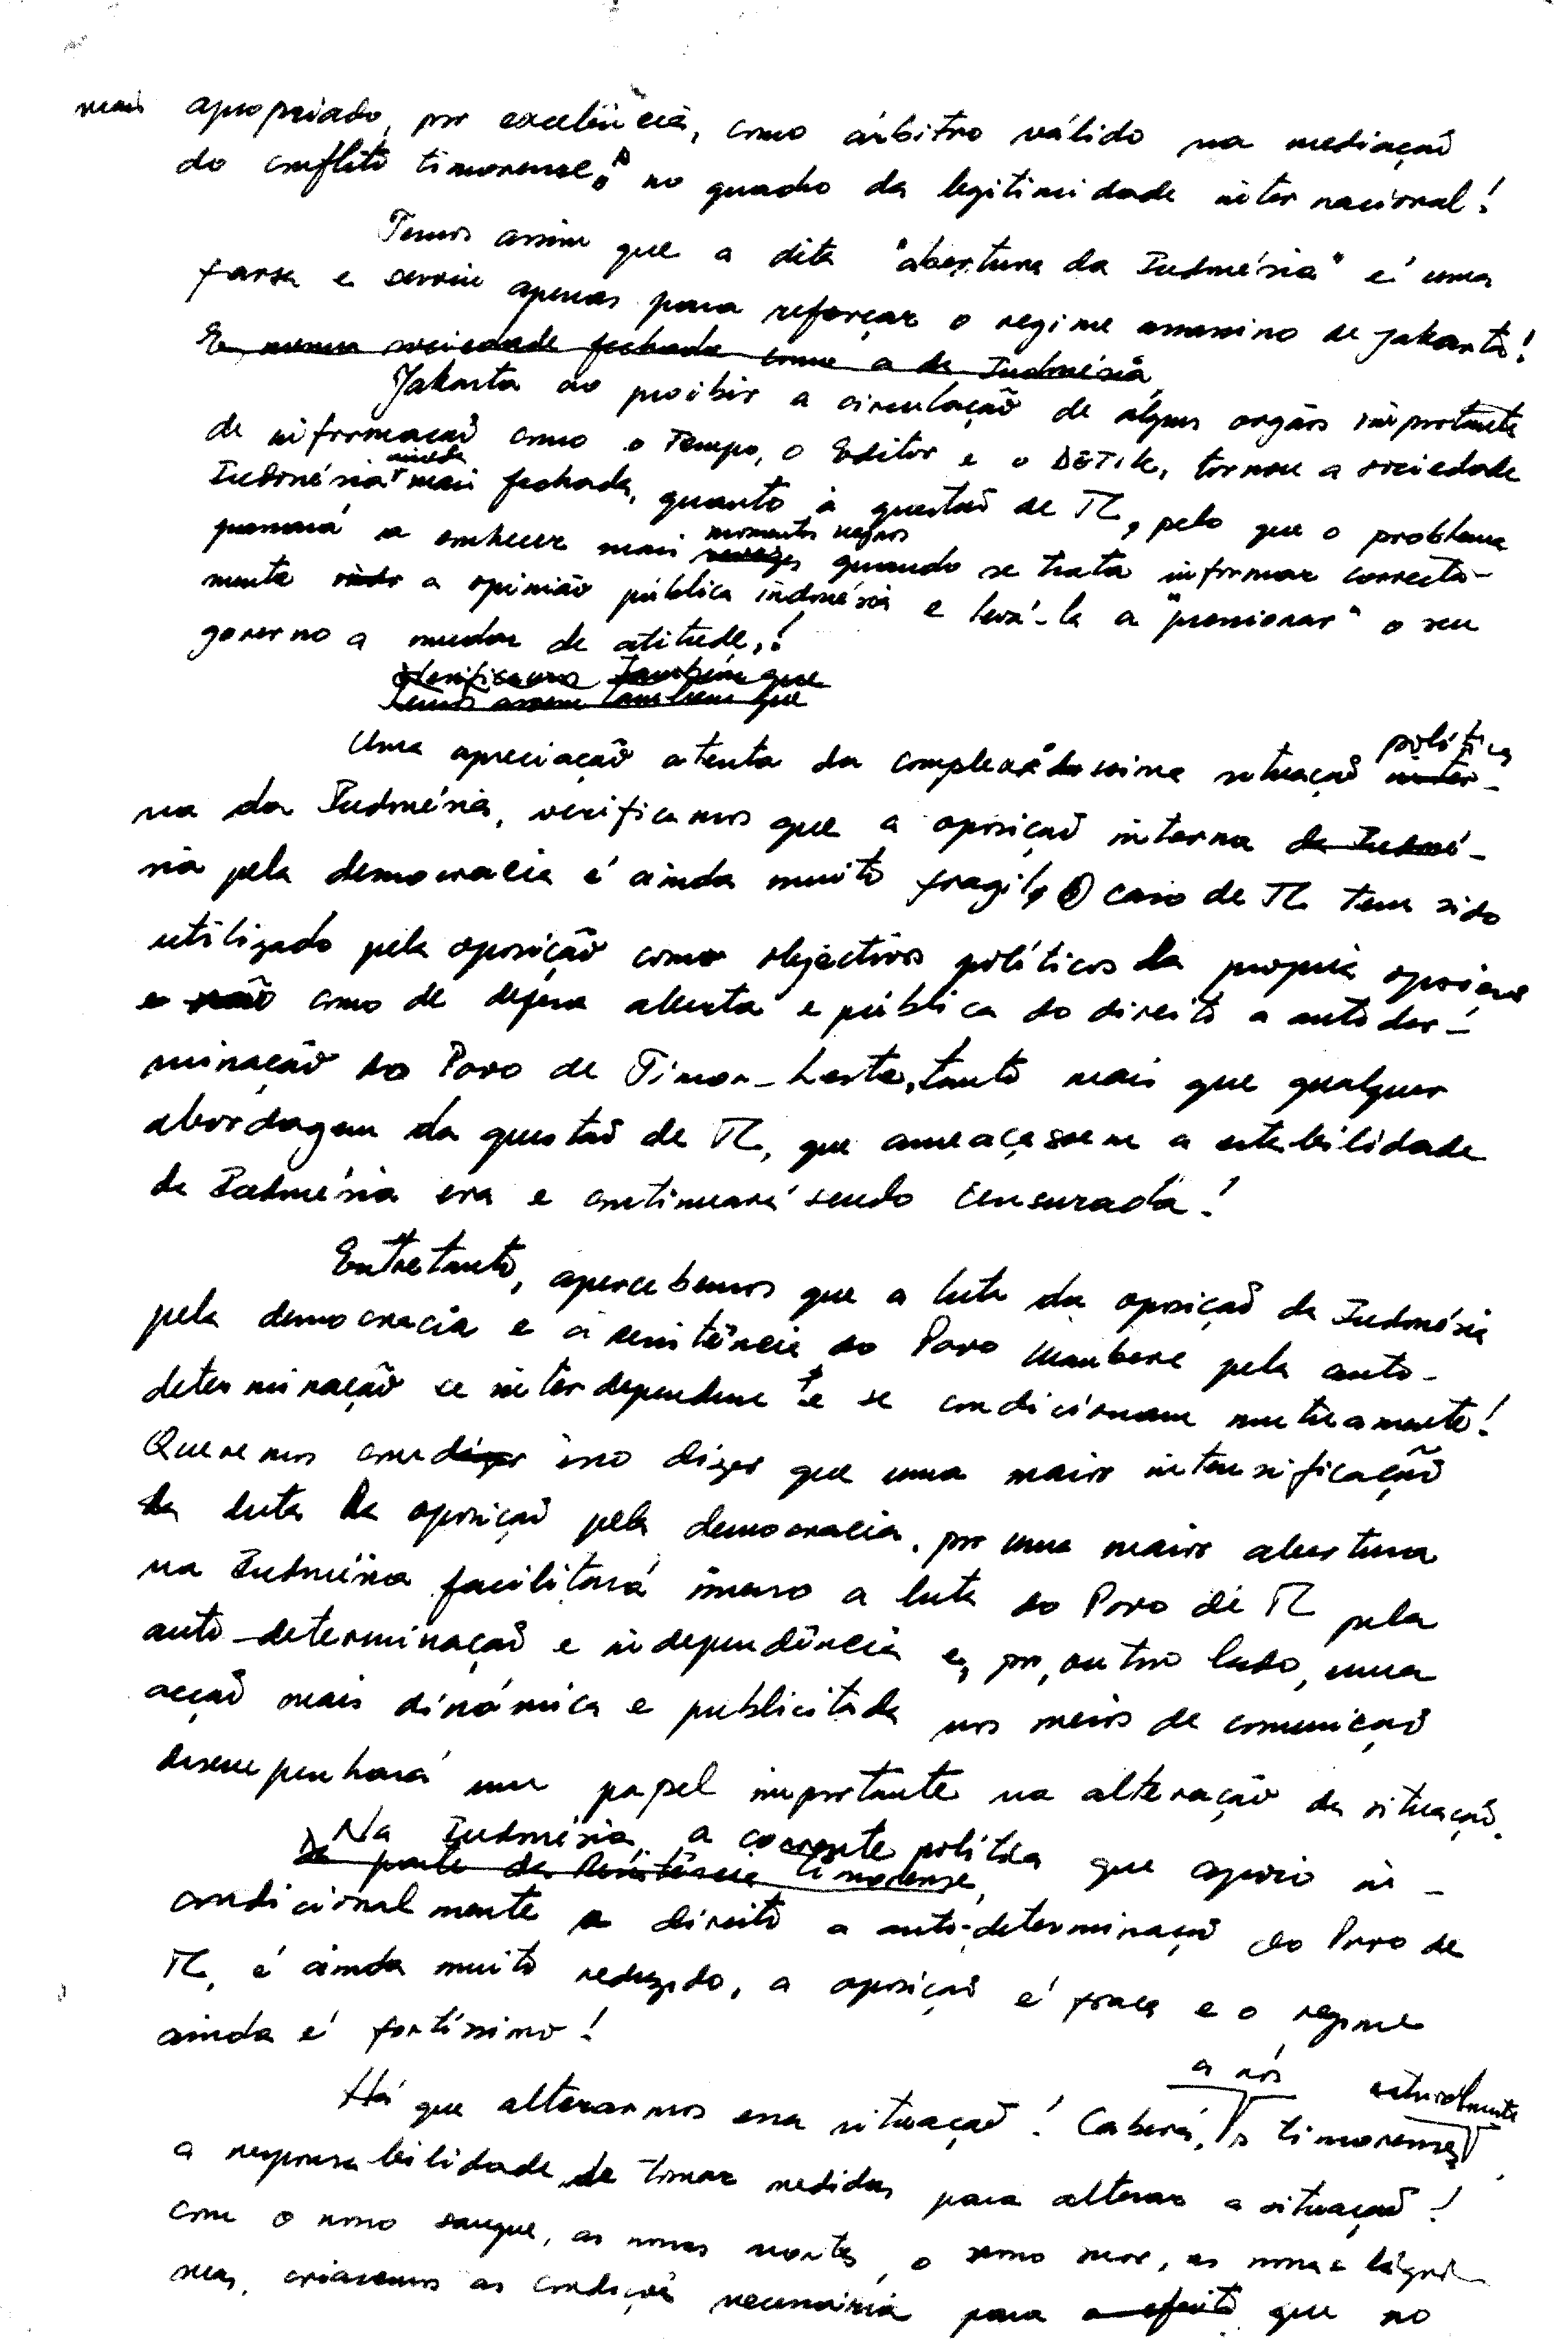 mais apropriado, por excelência, como árbitro válido na mediação
do conflito timorense, no quadro da legitimidade internacional!
Temos assim que a dita "abertura da Indonésia" é uma
farsa e serviu apenas para reforçar o regime assassino de Jakarta!
E, numa sociedade fechada como a da Indonésia,
Jakarta ao proibir a circulação de alguns orgãos importante
de informação como o Tempo, o Editor e o DETIK, tornou a sociedade
Indonésia ainda mais fechada, quanto à questão de TL, pelo que o problema
passará a conhecer mais momentos negros quando se trata informar correcta-
mente a opinião pública indonésia e levá-la a "pressionar" o seu
governo a mudar de atitude,!
Verificamos também que
Temos assim também que
Uma apreciação atenta da complexidssima situação política inter-
na da Indonésia, verificamos que a oposição interna da Indoné-
sia pela democracia é ainda muito fragil, O caso de TL tem sido
utilizado pela oposição como objectivos políticos da propria oposição
e não como de defesa aberta e pública do direito a autoder-
minação do Povo de Timor-Leste, tanto mais que qualquer
abordagem da questão de TL, que ameaçassem a estabilidade
da Indonésia era e continuará sendo censurada!
Entretanto, apercebemos que a luta da oposição da Indonésia
pela democracia e a resistência do Povo Maubere pela auto-
determinação se interdependente e se condicionam mutuamente!
Queremos com isso dizer que uma maior intensificação
da luta da oposição pela democracia, por uma maior abertura
na Indonésia facilitará imenso a luta do Povo de TL pela
auto-determinação e independência e, por, outro lado, uma
acção mais dinâmica e publicitada nos meios de comunicação
desempenhará um papel importante na alteração da situação.
Na Indonésia, a corrente política que apoio in-
da parte da Resistência timorense,
condicionalmente o direito a auto-determinação do Povo de
TL, é ainda muito reduzido, a oposição é fraca e o regime
ainda é fortíssimo!
Há que alterarmos essa situação! Caberá, a nós timorenses naturalmente
a responsabilidade de tomar medidas para alterar a situação!
Com o nosso sangue, as nossas mortes, o nosso suor, as nossas lágri-
mas, criaremos as condições necessária para o efeito que no